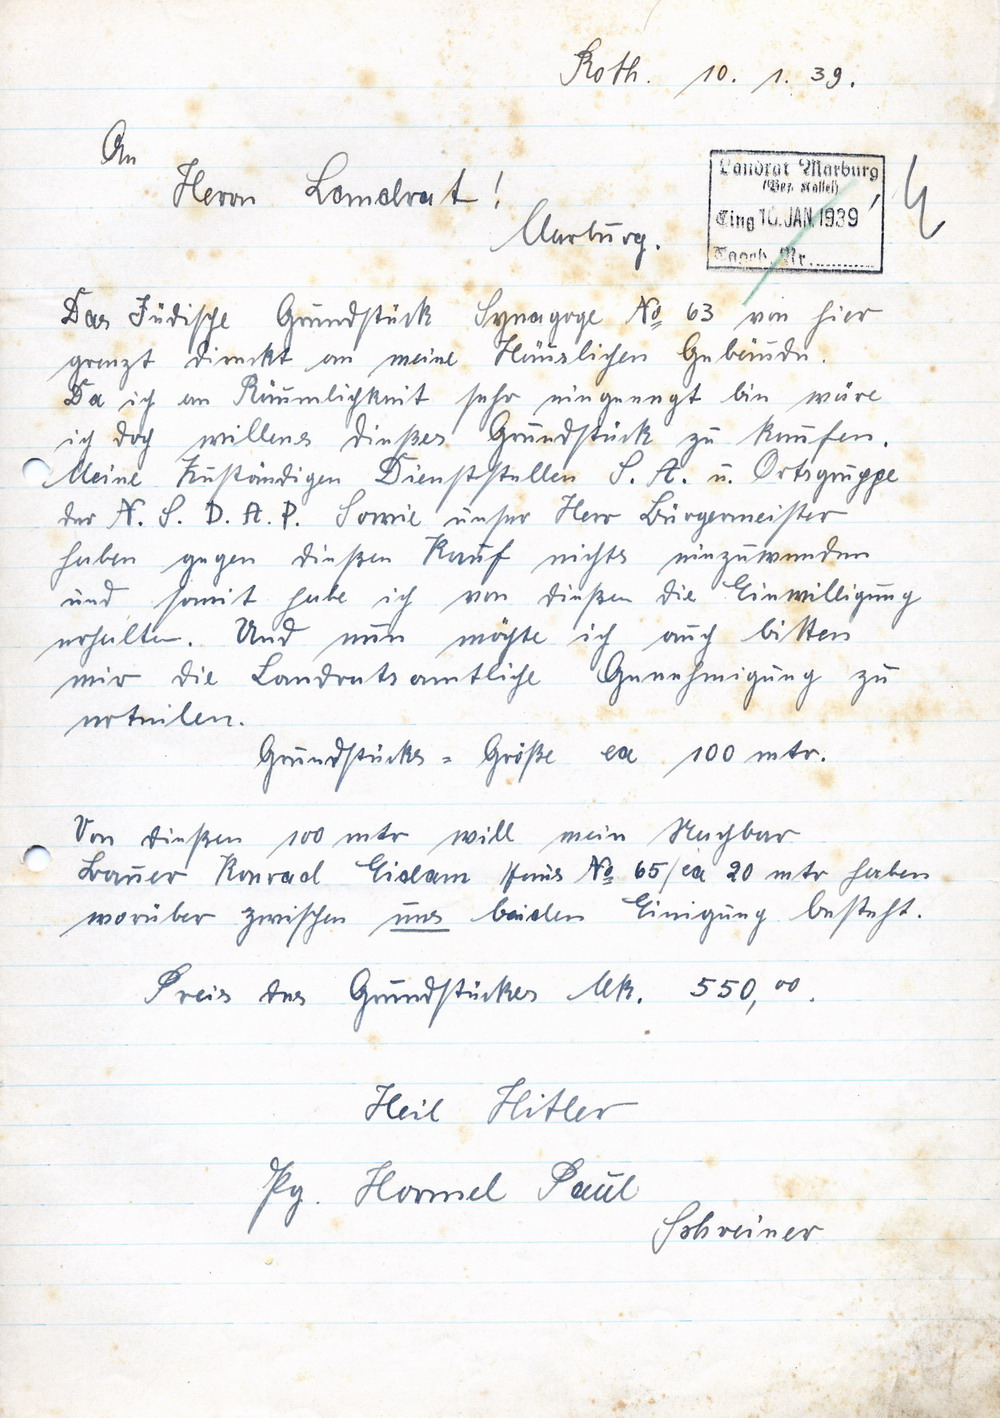 Roth. 10. 1. 39.
An
Herrn Landrat!
Marburg.
Landrat Marburg
(Bez. Kassel)
Eing 10. JAN. 1939
Tageb. Nr.
Das Jüdische Grundstück Synagoge No 63 von hier
grenzt direckt an meine Häuslichen Gebäude.
Da ich an Räumlichkeit sehr eingeengt bin wäre
ich doch willens dießes Grundstück zu kaufen.
Meine Zuständigen Dienststellen S. A. u. Ortsgruppe
der N. S. D. A. P. Sowie unser Herr Bürgermeister
haben gegen dießen Kauf nichts einzuwenden
und somit habe ich von dießen die Einwilligung
erhalten. Und nun möchte ich auch bitten
mir die Landratsamtliche Genehmigung zu
erteilen.
Grundstücks = Größe ca 100 mtr.
Von dießen 100 mtr will mein Nachbar
Bauer Konrad Eidam Haus No 65/ca 20 mtr haben
worüber zwischen uns beiden Einigung besteht.
Preis des Grundstückes Mk. 550,00.
Heil Hitler
Pg. Hormel Paul
Schreiner